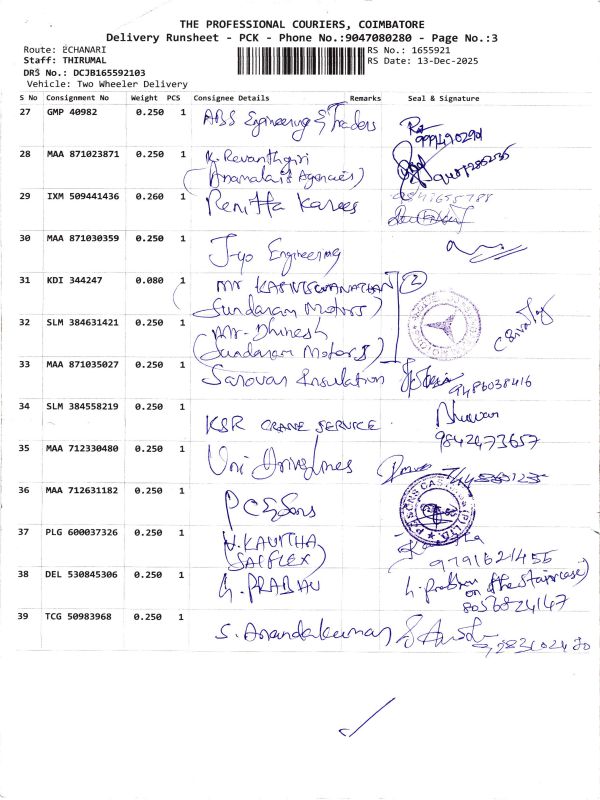 THE PROFESSIONAL COURIERS, COIMBATORE
Delivery Runsheet - PCK - Phone No.:9047080280 - Page No.:3
Route: ECHANARI RS No.: 1655921
Staff: THIRUMAL RS Date: 13-Dec-2025
DRS No.: DCJB165592103
Vehicle: Two Wheeler Delivery
S No Consignment No Weight PCS Consignee Details Remarks Seal & Signature
27 GMP 40982 0.250 1 ABS Engineering & Traders
28 MAA 871023871 0.250 1 K. Revanthgiri
(Anamalais Agencies)
29 IXM 509441436 0.260 1 Renitta
30 MAA 871030359 0.250 1 Jyo Engineering
31 KDI 344247 0.080 1 Mr (2)
(Sundaram Motors)
32 SLM 384631421 0.250 1 Mr. Dhinesh
(Sundaram Motors)
33 MAA 871035027 0.250 1 Sarovar Insulation 9486038416
34 SLM 384558219 0.250 1 KSR CRANE SERVICE
9842473657
35 MAA 712330480 0.250 1 Uni
36 MAA 712631182 0.250 1 P C & Sons
37 PLG 600037326 0.250 1 N. KAVITHA
(SAIFLEX) 9791621455
38 DEL 530845306 0.250 1 G. PRABHU
on the staircase)
8056824147
39 TCG 50983968 0.250 1 S. Anandakumar